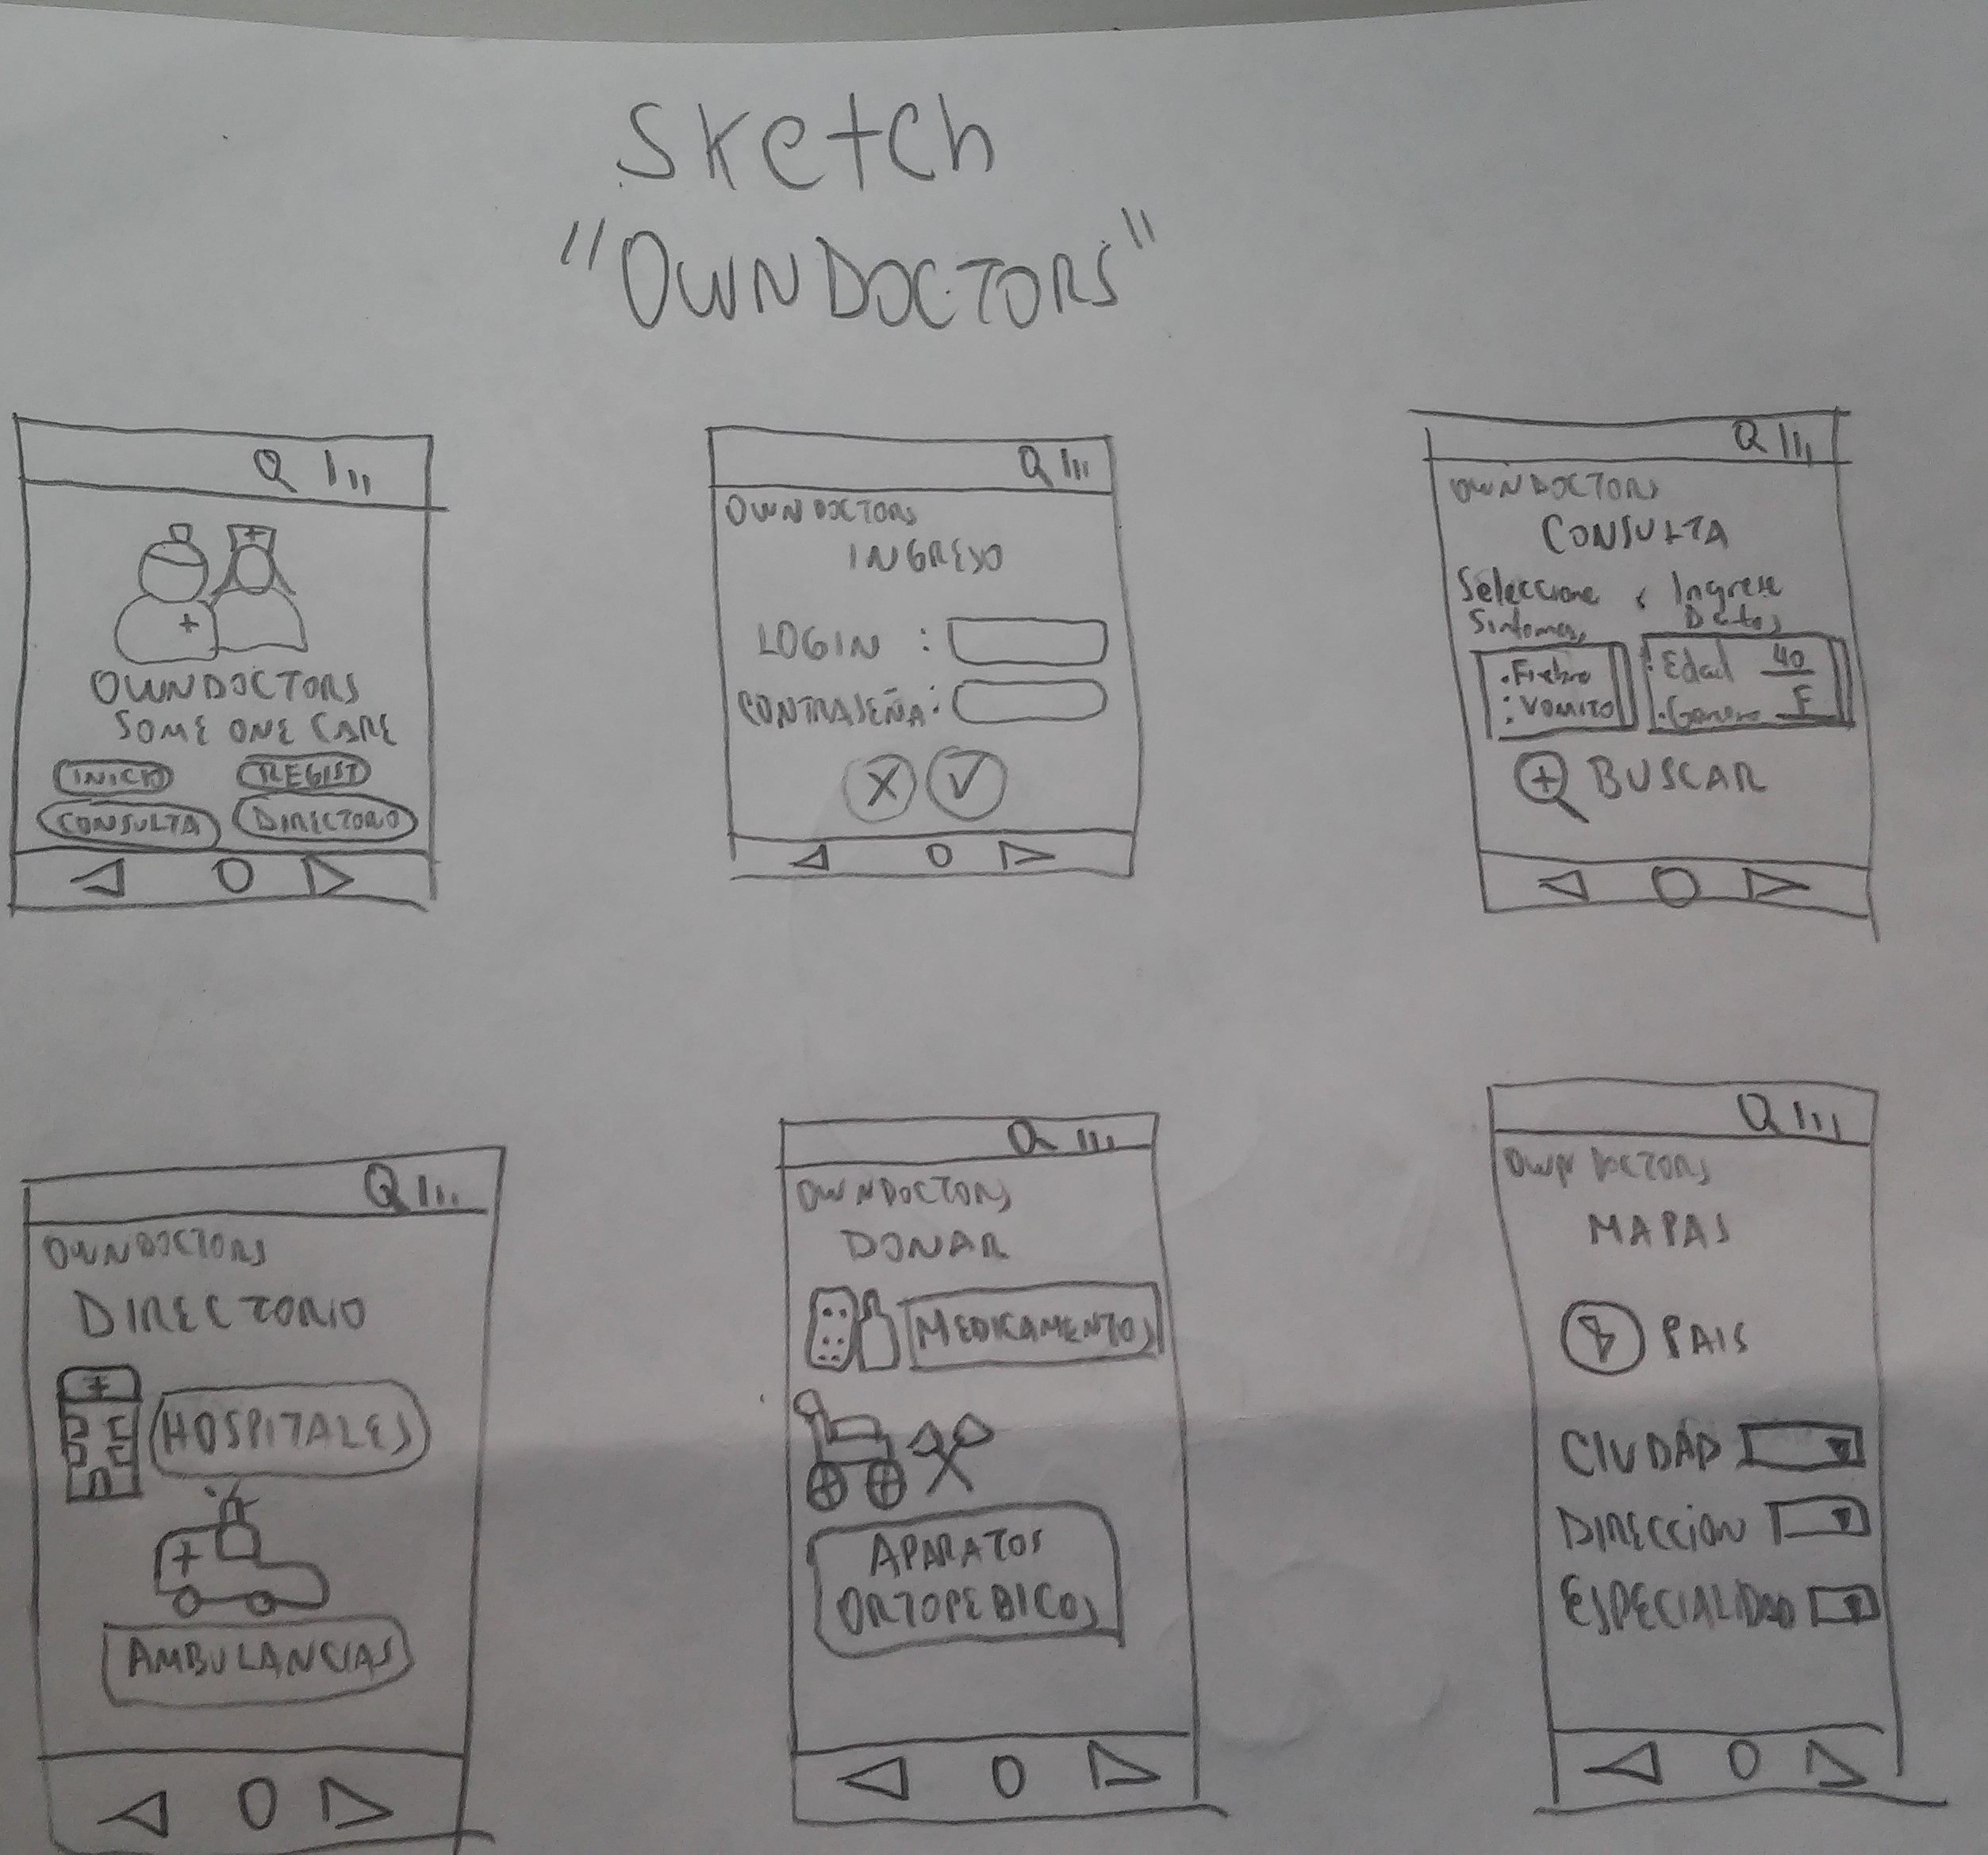 Sketch
"OWNDOCTORS"
OWNDOCTORS
SOME ONE CARE
INICIO REGIST
CONSULTA DIRECTORIO
OWNDOCTORS
INGRESO
LOGIN :
CONTRASEÑA:
X
OWNDOCTORS
CONSULTA
Seleccione Ingrese
Sintomas, Datos
. Fiebre
: VOMITO
: Edad 40
. Genero F
BUSCAR
OWNDOCTORS
DIRECTORIO
HOSPITALES
AMBULANCIAS
OWNDOCTORS
DONAR
MEDICAMENTOS
APARATOS
ORTOPEDICOS
OWN DOCTORS
MAPAS
PAIS
CIUDAD
DIRECCION
ESPECIALIDAD